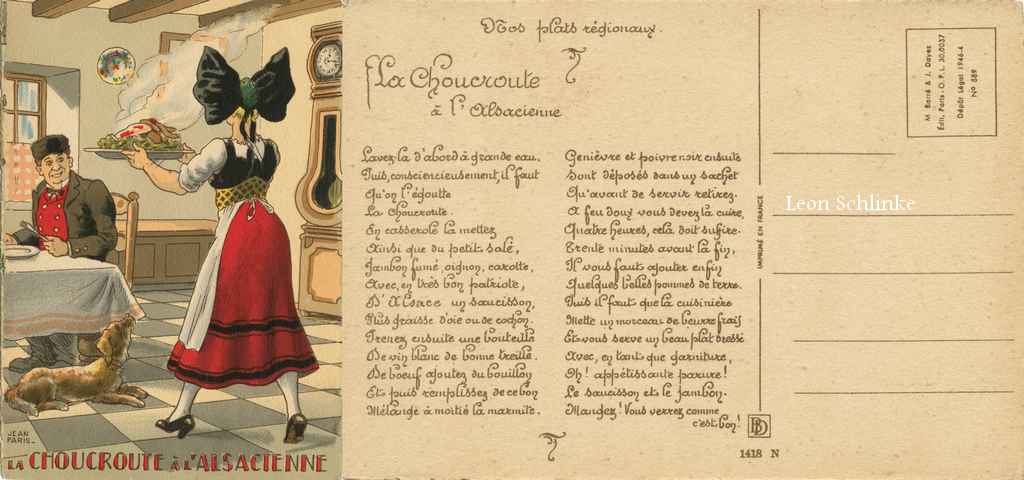 JEAN
PARIS_
LA CHOUCROUTE À L'ALSACIENNE
Nos plats régionaux.
La Choucroute
à l'Alsacienne
Lavez-la d'abord à grande eau.
Puis, consciencieusement, il faut
Qu'on l'égoutte
La Choucroute.
En casserole la mettez
Ainsi que du petit salé,
Jambon fumé, oignon, carotte,
Avec, en très bon patriote,
D'Alsace un saucisson,
Plus graisse d'oie ou de cochon.
Prenez ensuite une bouteille
De vin blanc de bonne treille.
De bœuf ajoutez du bouillon
Et puis remplissez de ce bon
Mélange à moitié la marmite.
Genièvre et poivre noir ensuite
Sont déposés dans un sachet
Qu'avant de servir retirez.
A feu doux vous devez la cuire,
Quatre heures, cela doit suffire.
Trente minutes avant la fin,
Il vous faut ajouter enfin
Quelques belles pommes de terre.
Puis il faut que la cuisinière
Mette un morceau de beurre frais
Et vous serve un beau plat dressé
Avec, en tant que garniture,
Oh! appétissante parure!
Le saucisson et le jambon.
Mangez! Vous verrez comme
c'est bon!
IMPRIMÉ EN FRANCE
BD
1418 N
M. Barré & J. Dayez
Édit. Paris - O. P. L. 30.0037
Dépôt Légal 1946-4
N° 589
Leon Schlinke